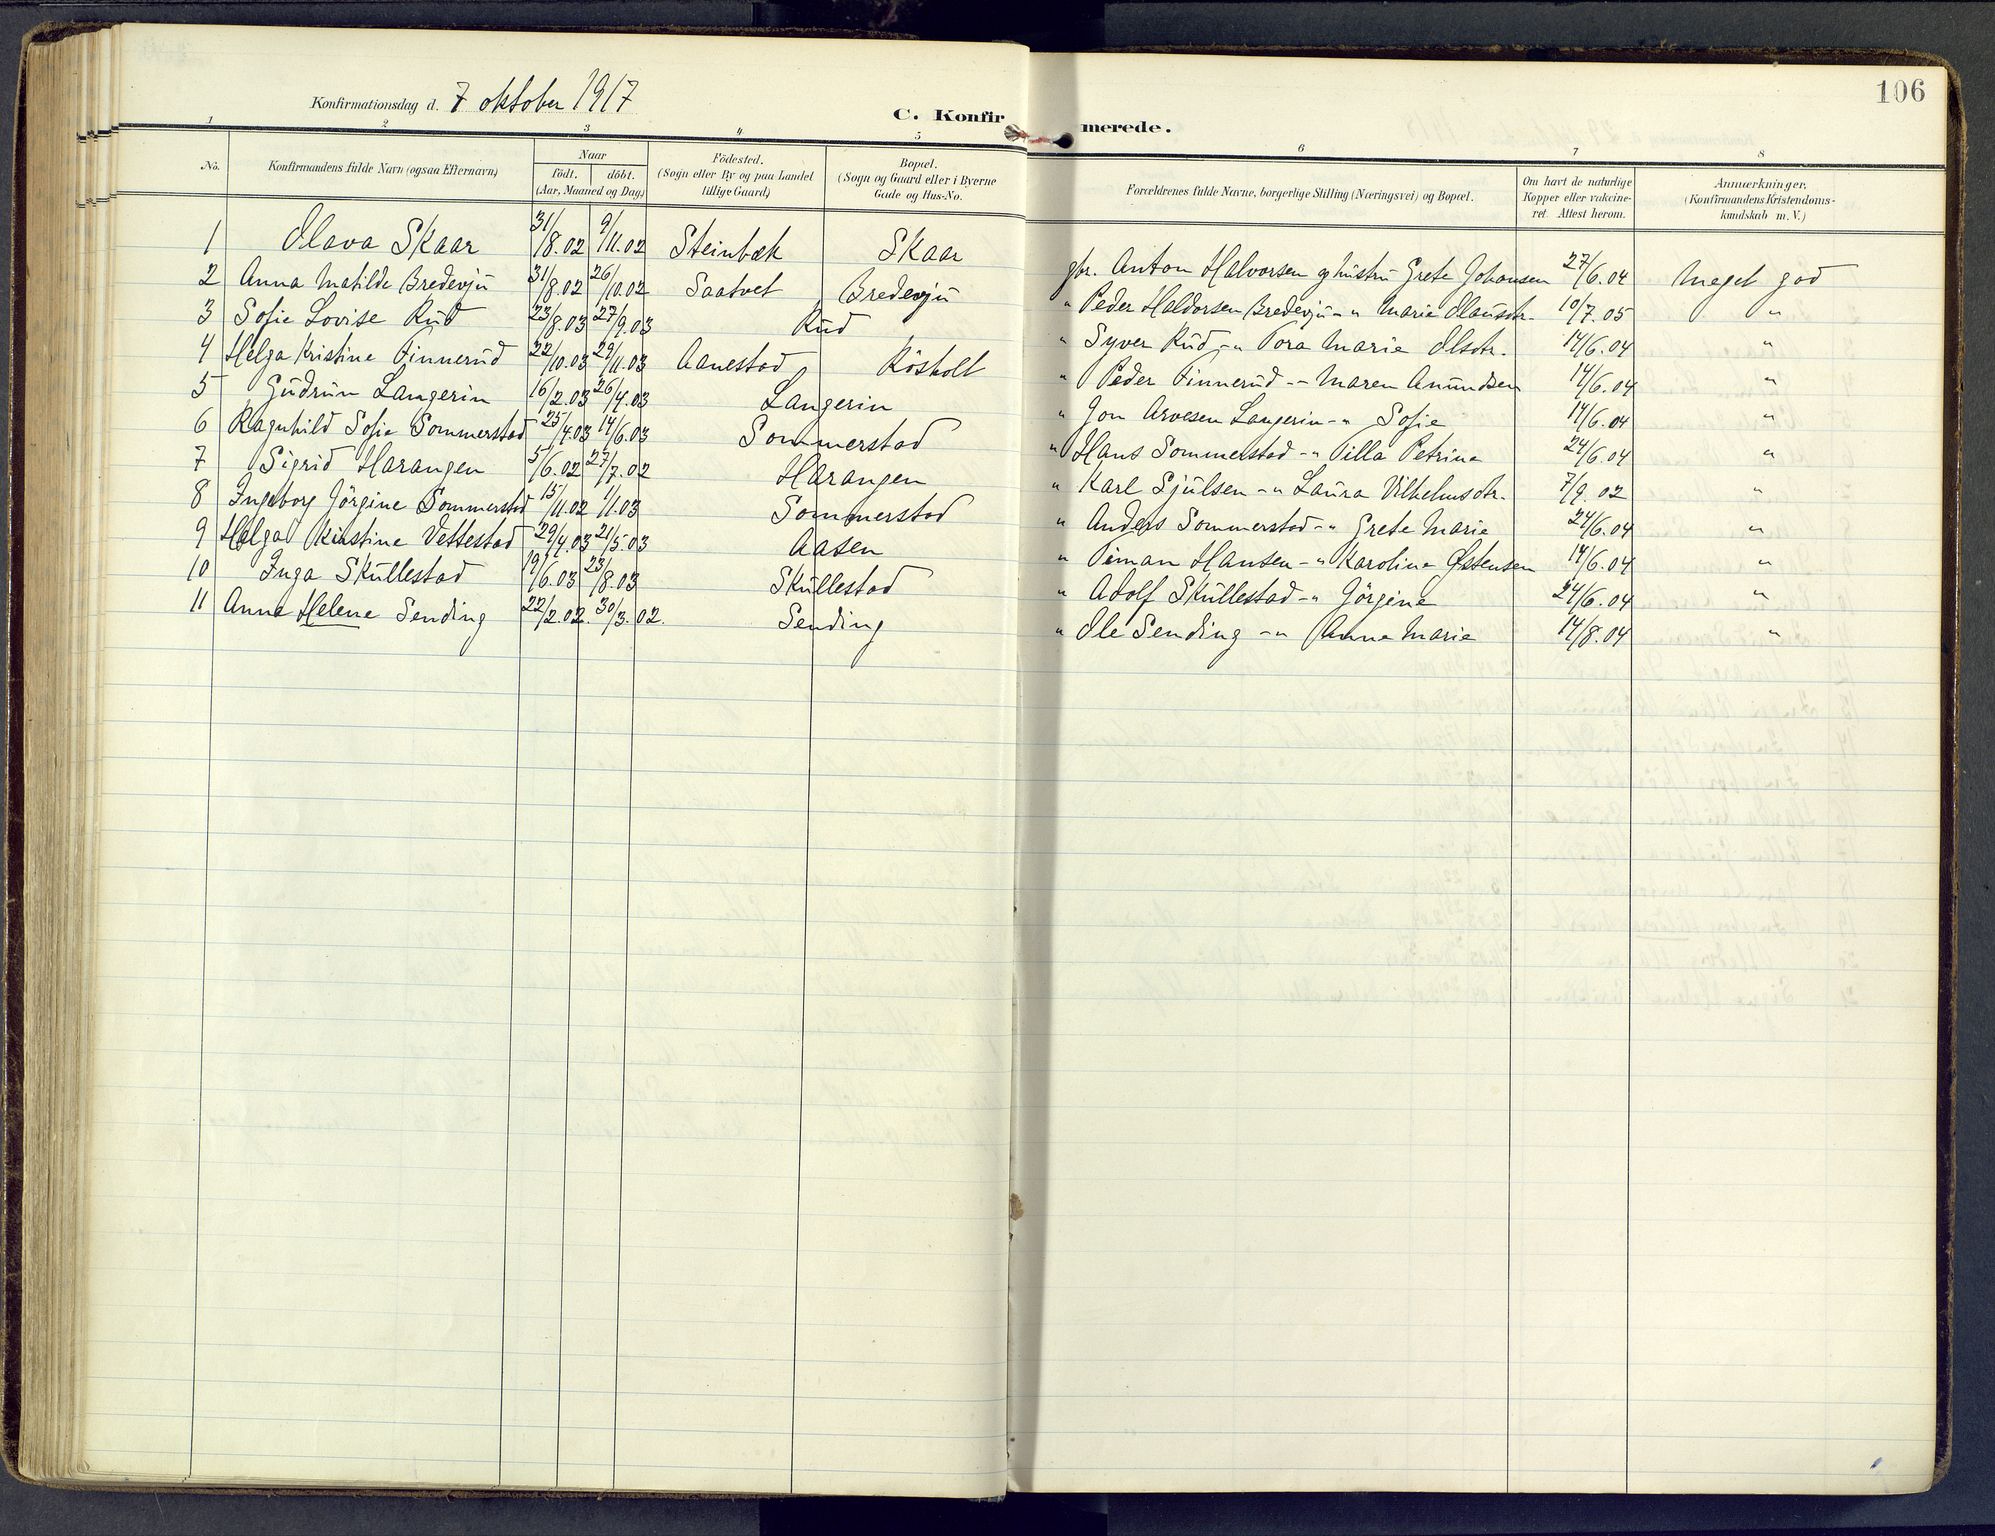 106
Konfirmationsdag d. 7 oktober 1917
C. Konfirmerede.
1 2 3 4 5 6 7 8
No. | Konfirmandens fulde Navn (ogsaa Efternavn) | Naar födt. döbt. (Aar, Maaned og Dag) | Födested. (Sogn eller By og paa Landet tillige Gaard) | Bopæl. (Sogn og Gaard eller i Byerne Gade og Hus-No. | Forældrenes fulde Navne, borgerlige Stilling (Næringsvei) og Bopæl. | Om havt de naturlige Kopper eller vakcineret. Attest herom. | Anmærkninger, (Konfirmandens Kristendomskundskab m. V.)
1 Olava Skaar 31/8.02 9/11.02 Steinbæk Skaar gbr. Anton Halvorsen og hustru Grete Johansen 27/6.04 Meget god
2 Anna Matilde Bredevju 31/8.02 26/10.02 Saatvet Bredevju " Peder Haldorsen Bredevju -" Marie Olausdtr. 10/7.05 "
3 Sofie Lovise Rud 23/8.03 27/9.03 Rud " Syver Rud -" Tora Marie Olsdtr. 14/6.04 "
4 Helga Kristine Finnerud 22/10.03 29/11.03 Aanestad Rösholt " Peder Finnerud -- Maren Amundsen 14/6.04 "
5 Gudrun Langerin 16/2.03 26/4.03 Langerin " Jon Arvesen Langerin -" Sofie 14/6.04 "
6 Ragnhild Sofie Sommerstad 25/4.03 14/6.03 Sommerstad " Hans Sommerstad -" Tilla Petrine 24/6.04 "
7 Sigrid Harangen 5/6.02 27/7.02 Harangen " Karl Sjulsen -" Laura Vilhelmsdtr. 7/9.02 "
8 Ingeborg Jörgine Sommerstad 15/11.02 1/11.03 Sommerstad " Anders Sommerstad -" Grete Marie 24/6.04 "
9 Helga Kirstine Vettestad 29/4.03 21/5.03 Aasen " Timan Hansen -" Karoline Østensen 14/6.04 "
10 Inga Skullestad 19/6.03 23/8.03 Skullestad " Adolf Skullestad -" Jörgine 24/6.04 "
11 Anne Helene Sending 22/2.02. 30/3.02. Sending " Ole Sending -" Anne Marie 14/8.04 "